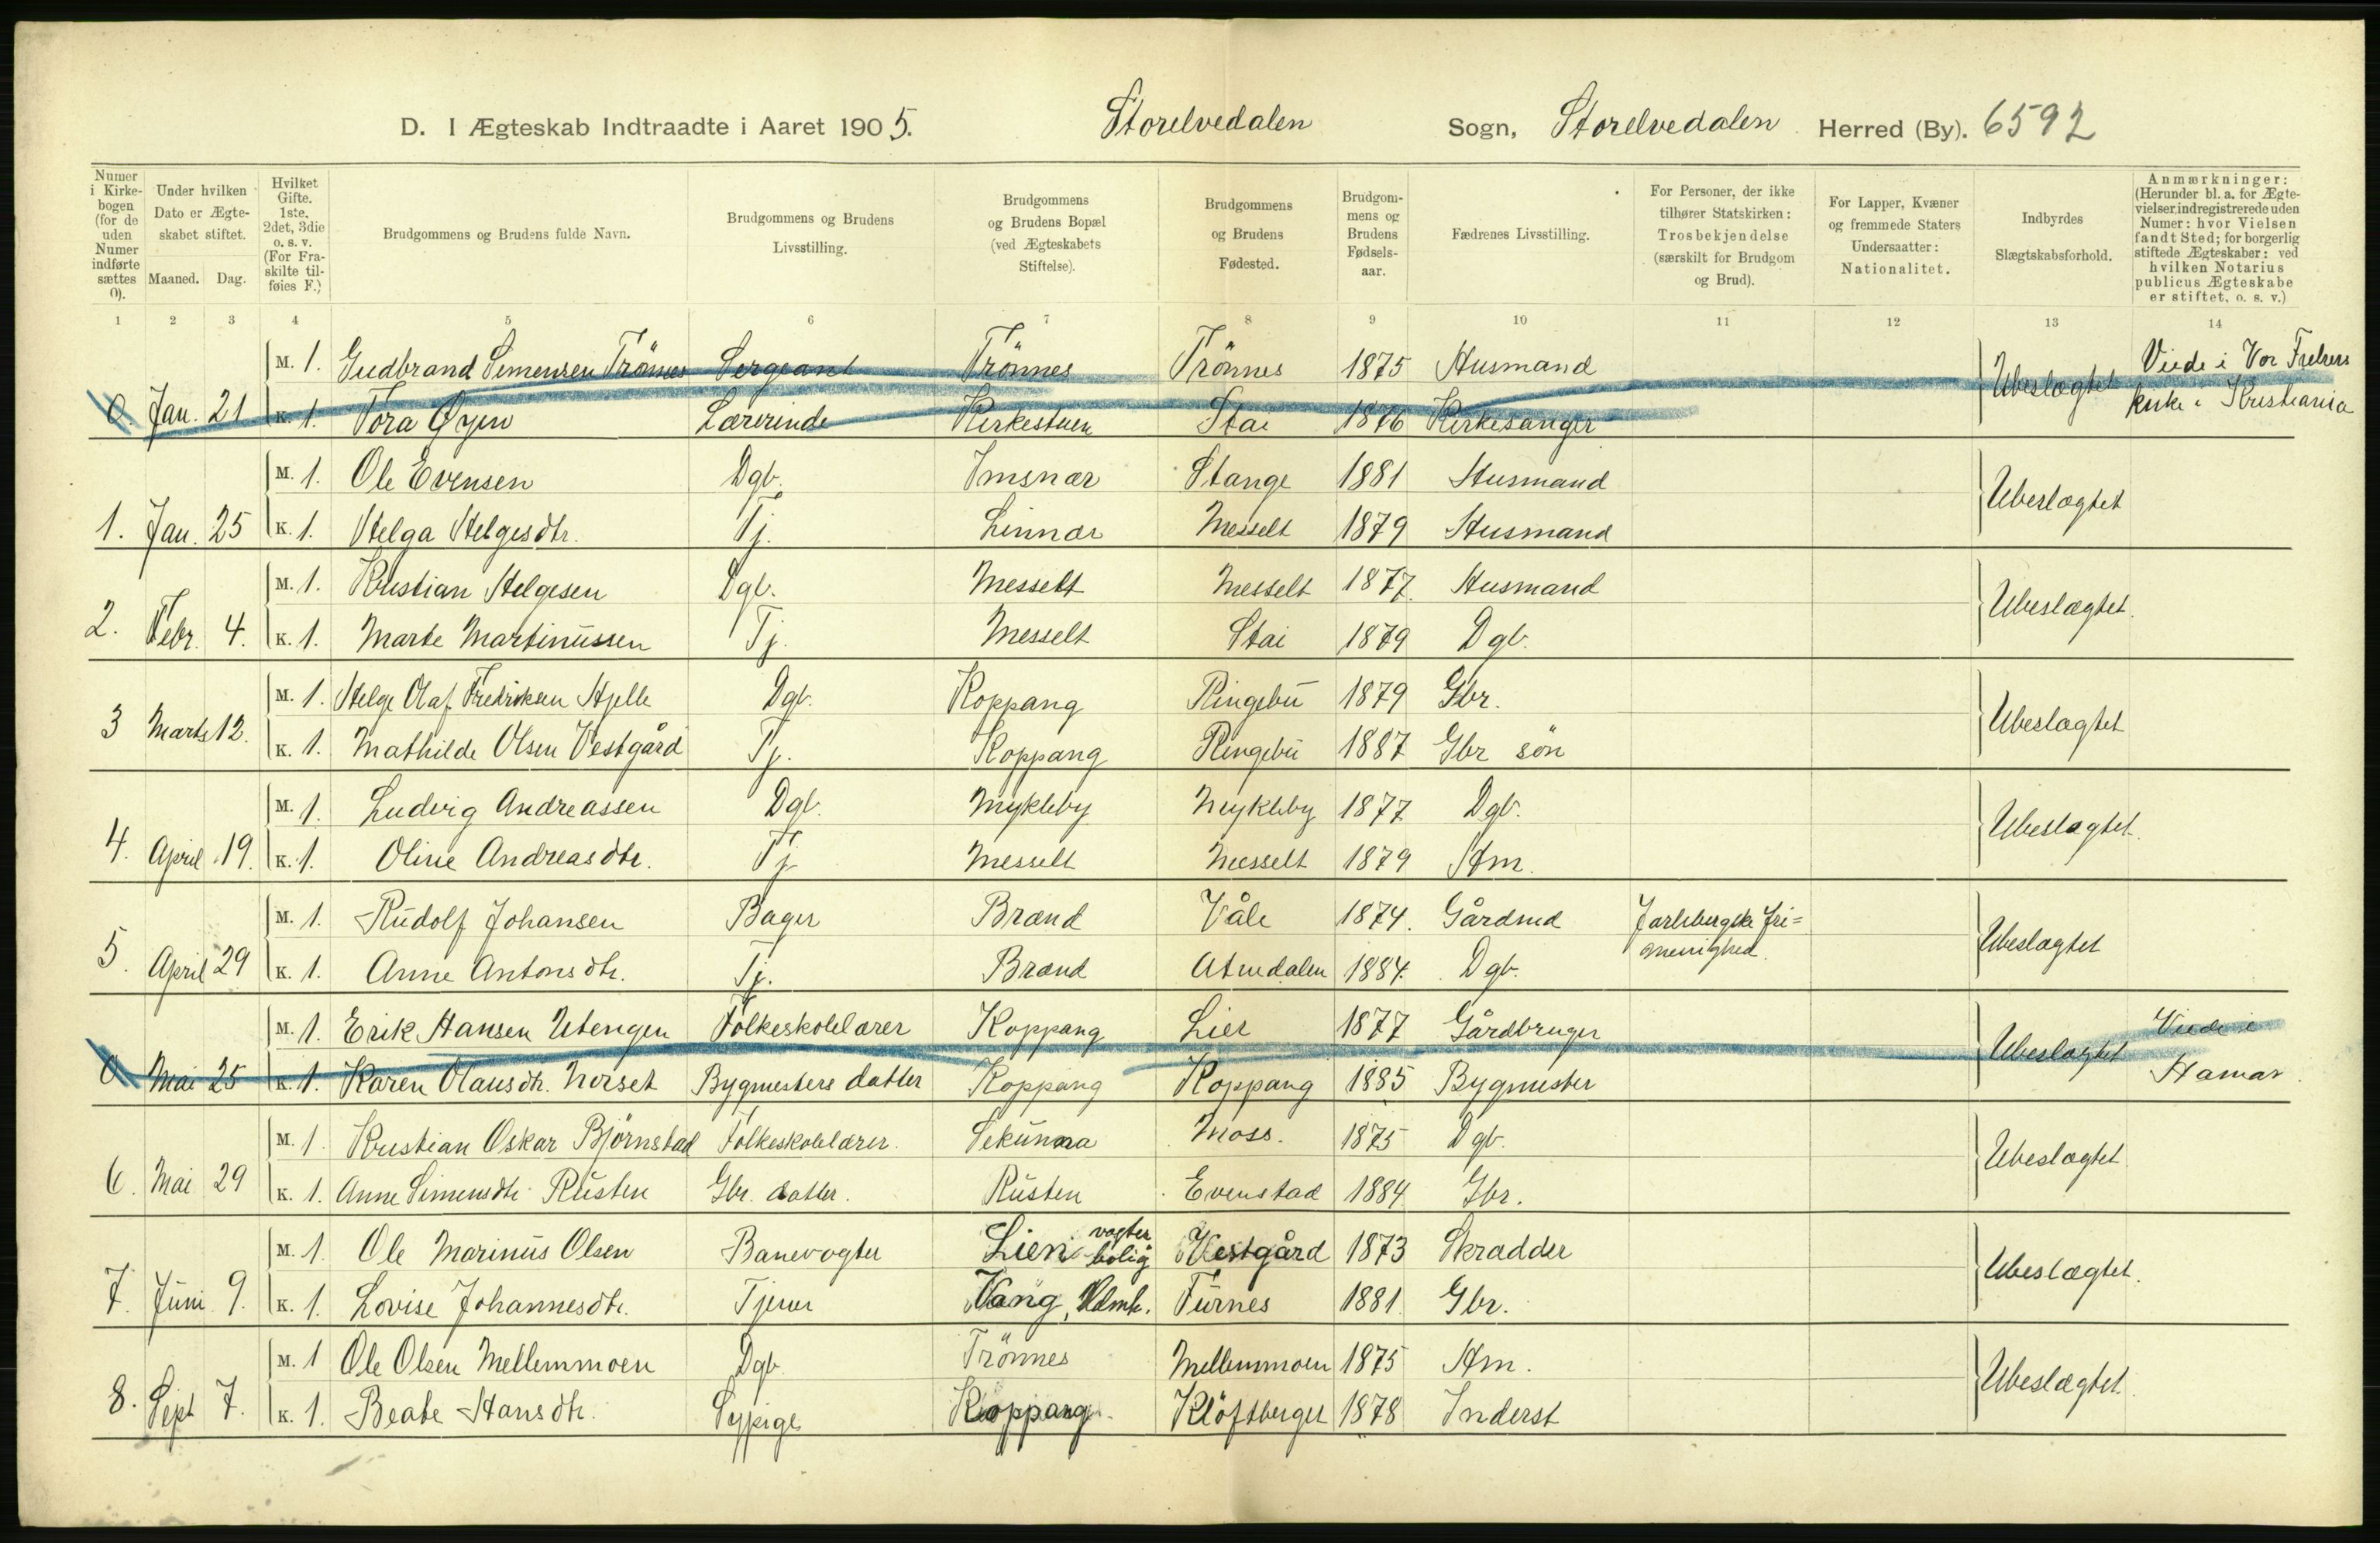 D. I Ægteskab Indtraadte i Aaret 1905. Storelvedalen Sogn, Storelvedalen Herred (By). 6592
Numer i Kirkebogen (for de uden Numer indførte sættes 0). Under hvilken Dato er Ægteskabet stiftet. Maaned. Dag. Hvilket Gifte. 1ste, 2det, 3die o. s. v. (For Fraskilte tilføies F.) Brudgommens og Brudens fulde Navn. Brudgommens og Brudens Livsstilling. Brudgommens og Brudens Bopæl (ved Ægteskabets Stiftelse). Brudgommens og Brudens Fødested. Brudgommens og Brudens Fødselsaar. Fædrenes Livsstilling. For Personer, der ikke tilhører Statskirken: Trosbekjendelse (særskilt for Brudgom og Brud). For Lapper, Kvæner og fremmede Staters Undersaatter: Nationalitet. Indbyrdes Slægtskabsforhold. Anmærkninger: (Herunder bl. a. for Ægtevielser, indregistrerede uden Numer: hvor Vielsen fandt Sted; for borgerlig stiftede Ægteskaber: ved hvilken Notarius publicus Ægteskabe er stiftet, o. s. v.)
1 2 3 4 5 6 7 8 9 10 11 12 13 14
M. 1. Gudbrand Simensen Trönnes Sergeant Trönnes Trönnes 1875 Husmand Ubeslægtet Viede i Vor Frelsers
0. Jan. 21 K. 1. Tora Øyen Lærerinde Kirkestuen Stai 1876 Kirkesanger kirke i Kristiania
M. 1. Ole Evensen Dgb. Imsnær Stange 1881 Husmand Ubeslægtet
1. Jan. 25 K. 1. Helga Helgesdtr. Tj. Linnær Messelt 1879 Husmand
M. 1. Kristian Helgesen Dgb. Messelt Messelt 1877. Husmand Ubeslægtet.
2. Febr. 4. K. 1. Marte Martinussen Tj. Messelt Stai 1879 Dgb.
M. 1. Helge Olaf Fredriksen Hjelle Dgb. Koppang Ringebu 1879 Gbr. Ubeslægtet
3 Marts 12. K. 1. Mathilde Olsen Vestgård Tj. Koppang Ringebu 1887 Gbr sön
M. 1. Ludvig Andreassen Dgb. Mykleby Mykleby 1877 Dgb. Ubeslægtet.
4. April 19. K. 1. Oline Andreasdtr. Tj Messelt Messelt 1879 Hm.
M. 1. Rudolf Johansen Bager Brænd Våle 1874. Gårdmd Jarlsbergske fri=
menighed. Ubeslægtet
5. April 29 K. 1. Anne Antonsdtr. Tj. Brænd Atnedalen 1884. Dgb.
M. 1. Erik Hansen Utengen Folkeskolelærer Koppang Lier 1877 Gårdbruger Ubeslægtet Viede i
0 Mai 25 K. 1. Karen Olausdtr. Norset Bygmesters datter Koppang Koppang 1885 Bygmester Hamar.
M. 1. Kristian Oskar Björnstad Folkeskolelærer. Sekunna Moss. 1875 Dgb. Ubeslægtet
6. Mai 29 K. 1. Anne Simensdtr Rusten Gbr. datter. Rusten Evenstad 1884 Gbr.
M. 1. Ole Marinus Olsen Banevogter Lien vogter
bolig Vestgård 1873 Skrædder Ubeslægtet.
7. Juni 9. K. 1. Lovise Johannesdtr. Tjener Vang, Hdmk. Furnes 1881 Gbr.
M. 1 Ole Olsen Mellemmoen Dgb Trönnes Mellemmoen 1875 Hm. Ubeslægtet.
8. Sept 7. K. 1. Beate Hansdtr. Sypige Koppang. Klöftberget 1878 Inderst